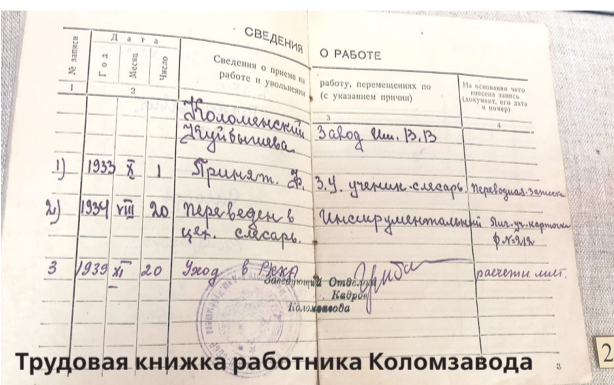 СВЕДЕНИЯ О РАБОТЕ
№ записи
Дата
Год
Месяц
Число
Сведения о приеме на работу, перемещениях по
работе и увольнении (с указанием причин)
На основании чего
внесена запись
(документ, его дата
и номер)
1 2 3 4
Коломенский Завод Им. В.В
Куйбышева
1) 1933 X 1 Принят. Ф. З.У. ученик-слесарь. Переводная записка
2) 1934 VIII 20 переведен в Инструментальный Лич. уч. карточка
цех. слесарь. ф. №
3 1939 XI 20 Уход в РККА расчетн лист.
Заведующий Отделом
Кадров
Коломзавода
Трудовая книжка работника Коломзавода
2
3